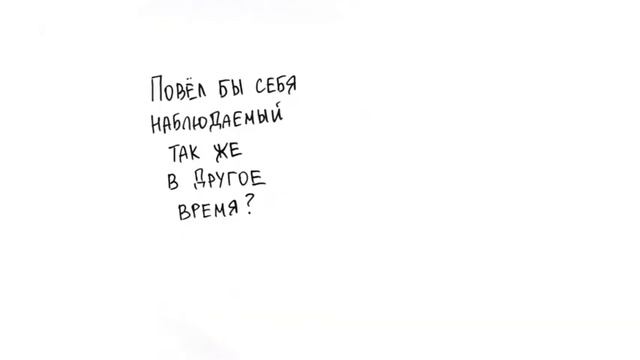 Повёл бы себя
наблюдаемый
так же
в другое
время?